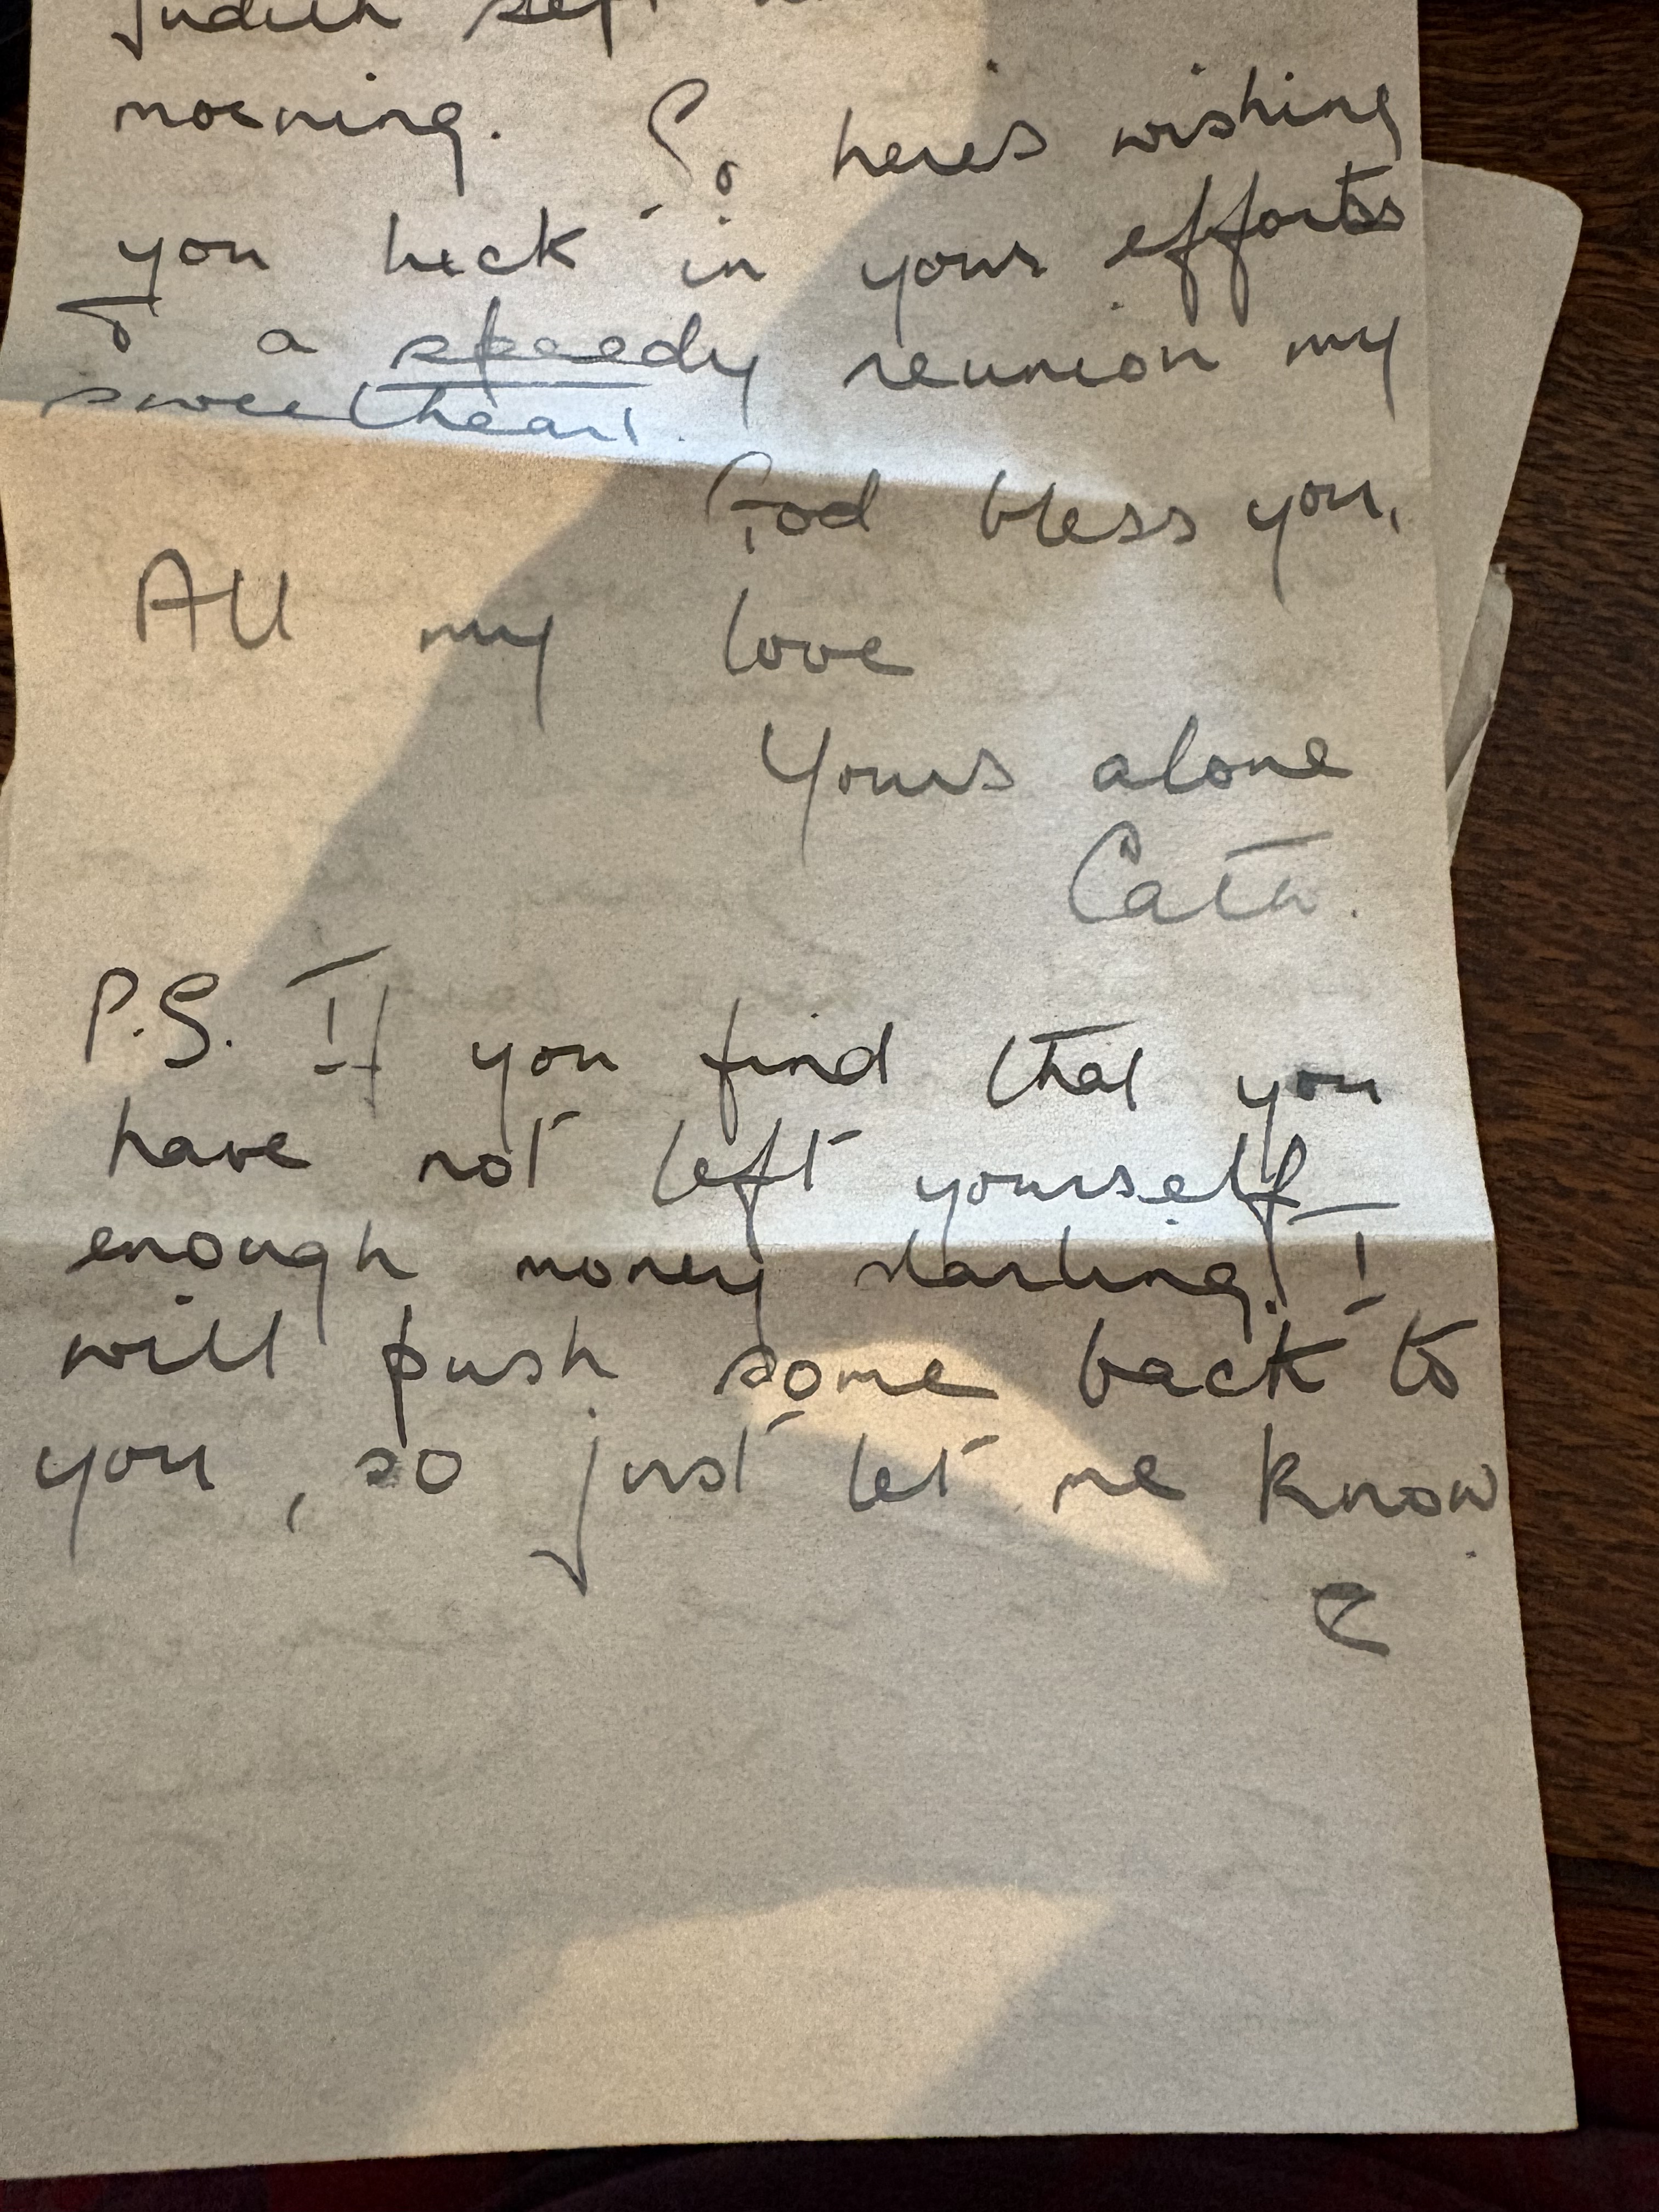 Judith left
morning. So here's wishing
you luck in your efforts
to a speedy reunion my
sweetheart.
God bless you,
All my love
Yours alone
Cath.
P.S. If you find that you
have not left yourself
enough money darling, I
will push some back to
you, so just let me know.
C